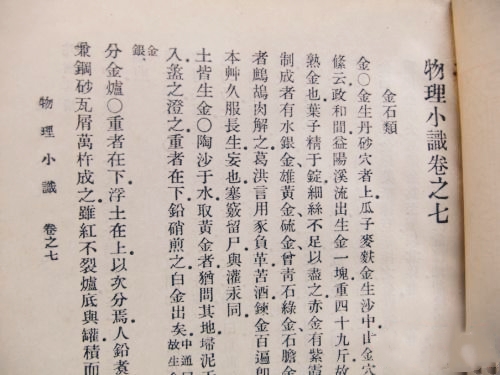 物理小識卷之七
金石類
金○金生丹砂穴者上瓜子麥麩金生沙中止金穴
絛云政和間益陽溪流出生金一塊重四十九斤故
熟金也葉子精于錠細絲不足以盡之赤金有紫霞
制成者有水銀金雄黃金硫金曾青石綠金石膽金
者鷓鴣肉解之葛洪言用豕負革苦酒鍊金百遍卽
本艸久服長生妄也塞簌留尸與灌汞同
土皆生金○陶沙于水取黃金者猶問其地埽泥于
入盞之澄之重者在下鉛硝煎之白金出矣中通曰
故生金
金
銀
分金爐○重者在下浮土在上以次分焉人鉛煮
鋼砂瓦屑萬杵成之雖紅不裂爐底與罐積而
物理小識 卷之七